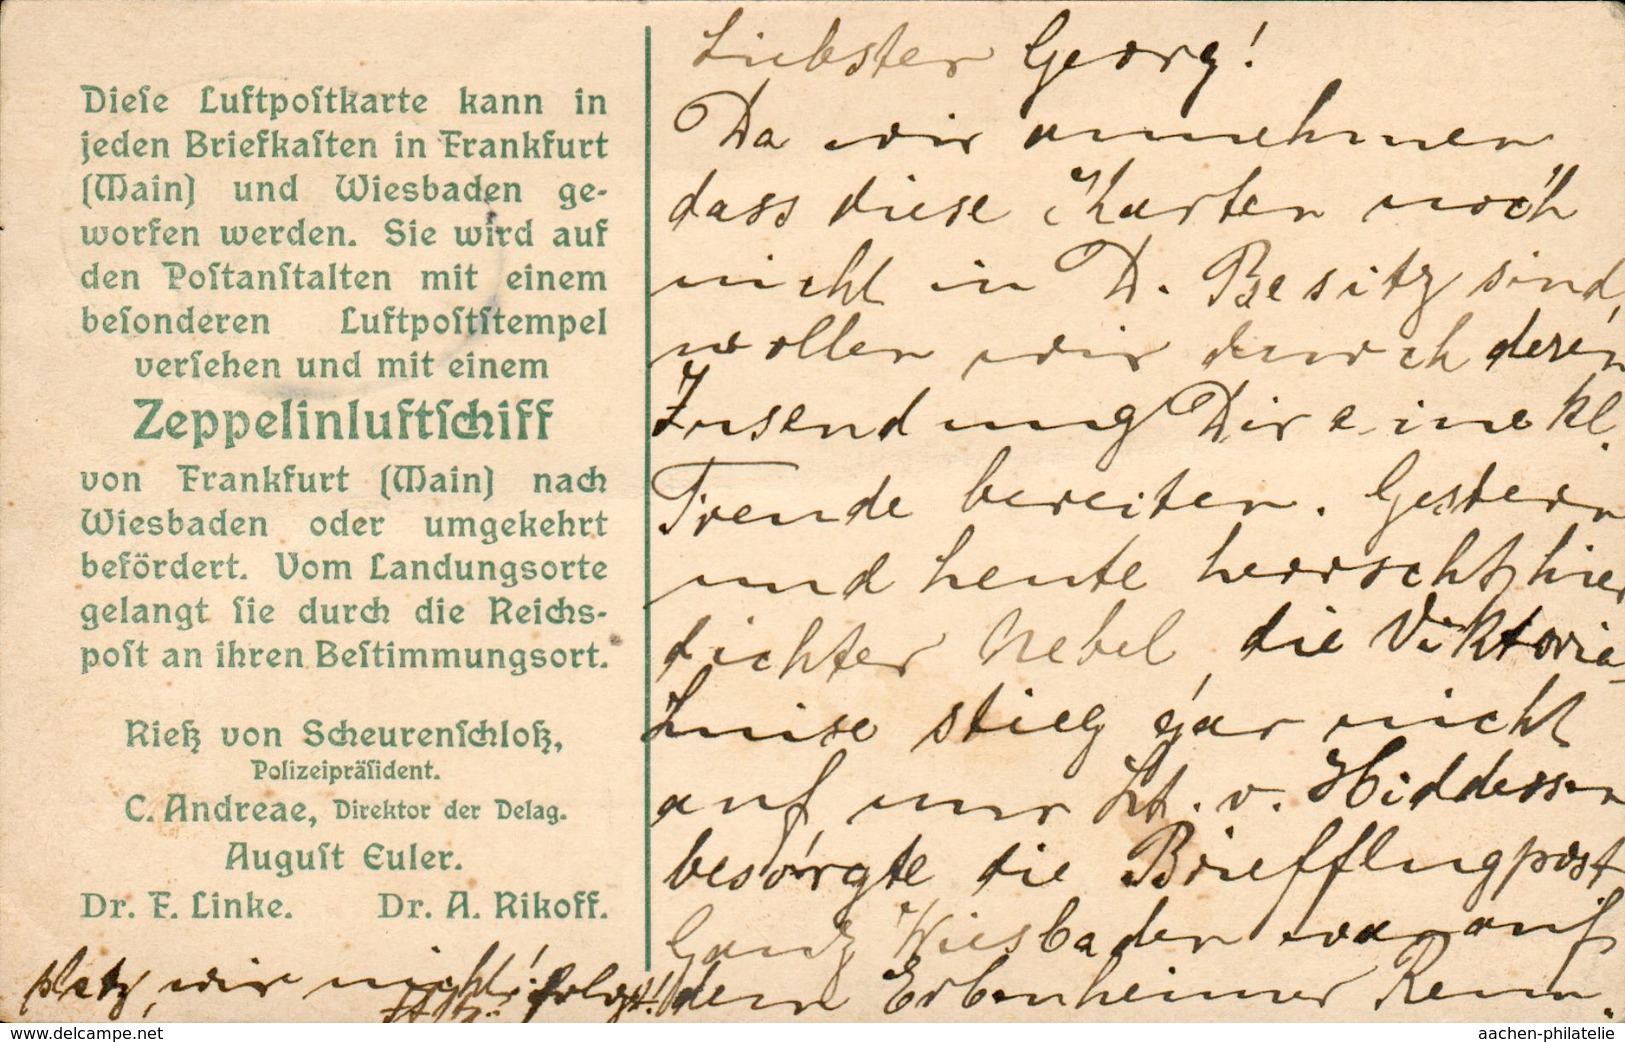 Dieſe Luftpoſtkarte kann in
jeden Briefkaſten in Frankfurt
(Main) und Wiesbaden ge-
worfen werden. Sie wird auf
den Poſtanſtalten mit einem
beſonderen Luftpoſtſtempel
verſehen und mit einem
Zeppelinluftſchiff
von Frankfurt (Main) nach
Wiesbaden oder umgekehrt
befördert. Vom Landungsorte
gelangt ſie durch die Reichs-
poſt an ihren Beſtimmungsort.
Rieß von Scheurenſchloß,
Polizeipräſident.
C. Andreae, Direktor der Delag.
Auguſt Euler.
Dr. F. Linke. Dr. A. Rikoff.
Liebster Georg!
Da wir annehmen
dass diese Karten noch
nicht in D. Besitz sind,
wollen wir durch deren
Zusendung Dir eine kl.
Freude bereiten. Gestern
und heute herrscht hier
dichter Nebel, die Viktoria-
Luise stieg gar nicht
auf, nur Lt. v. Hiddessen
besorgte die Briefflugpost
Ganz Wiesbaden war auf
dem Erbenheimer Renn-
platz, wir nicht!
delcampe.net
aachen-philatelie